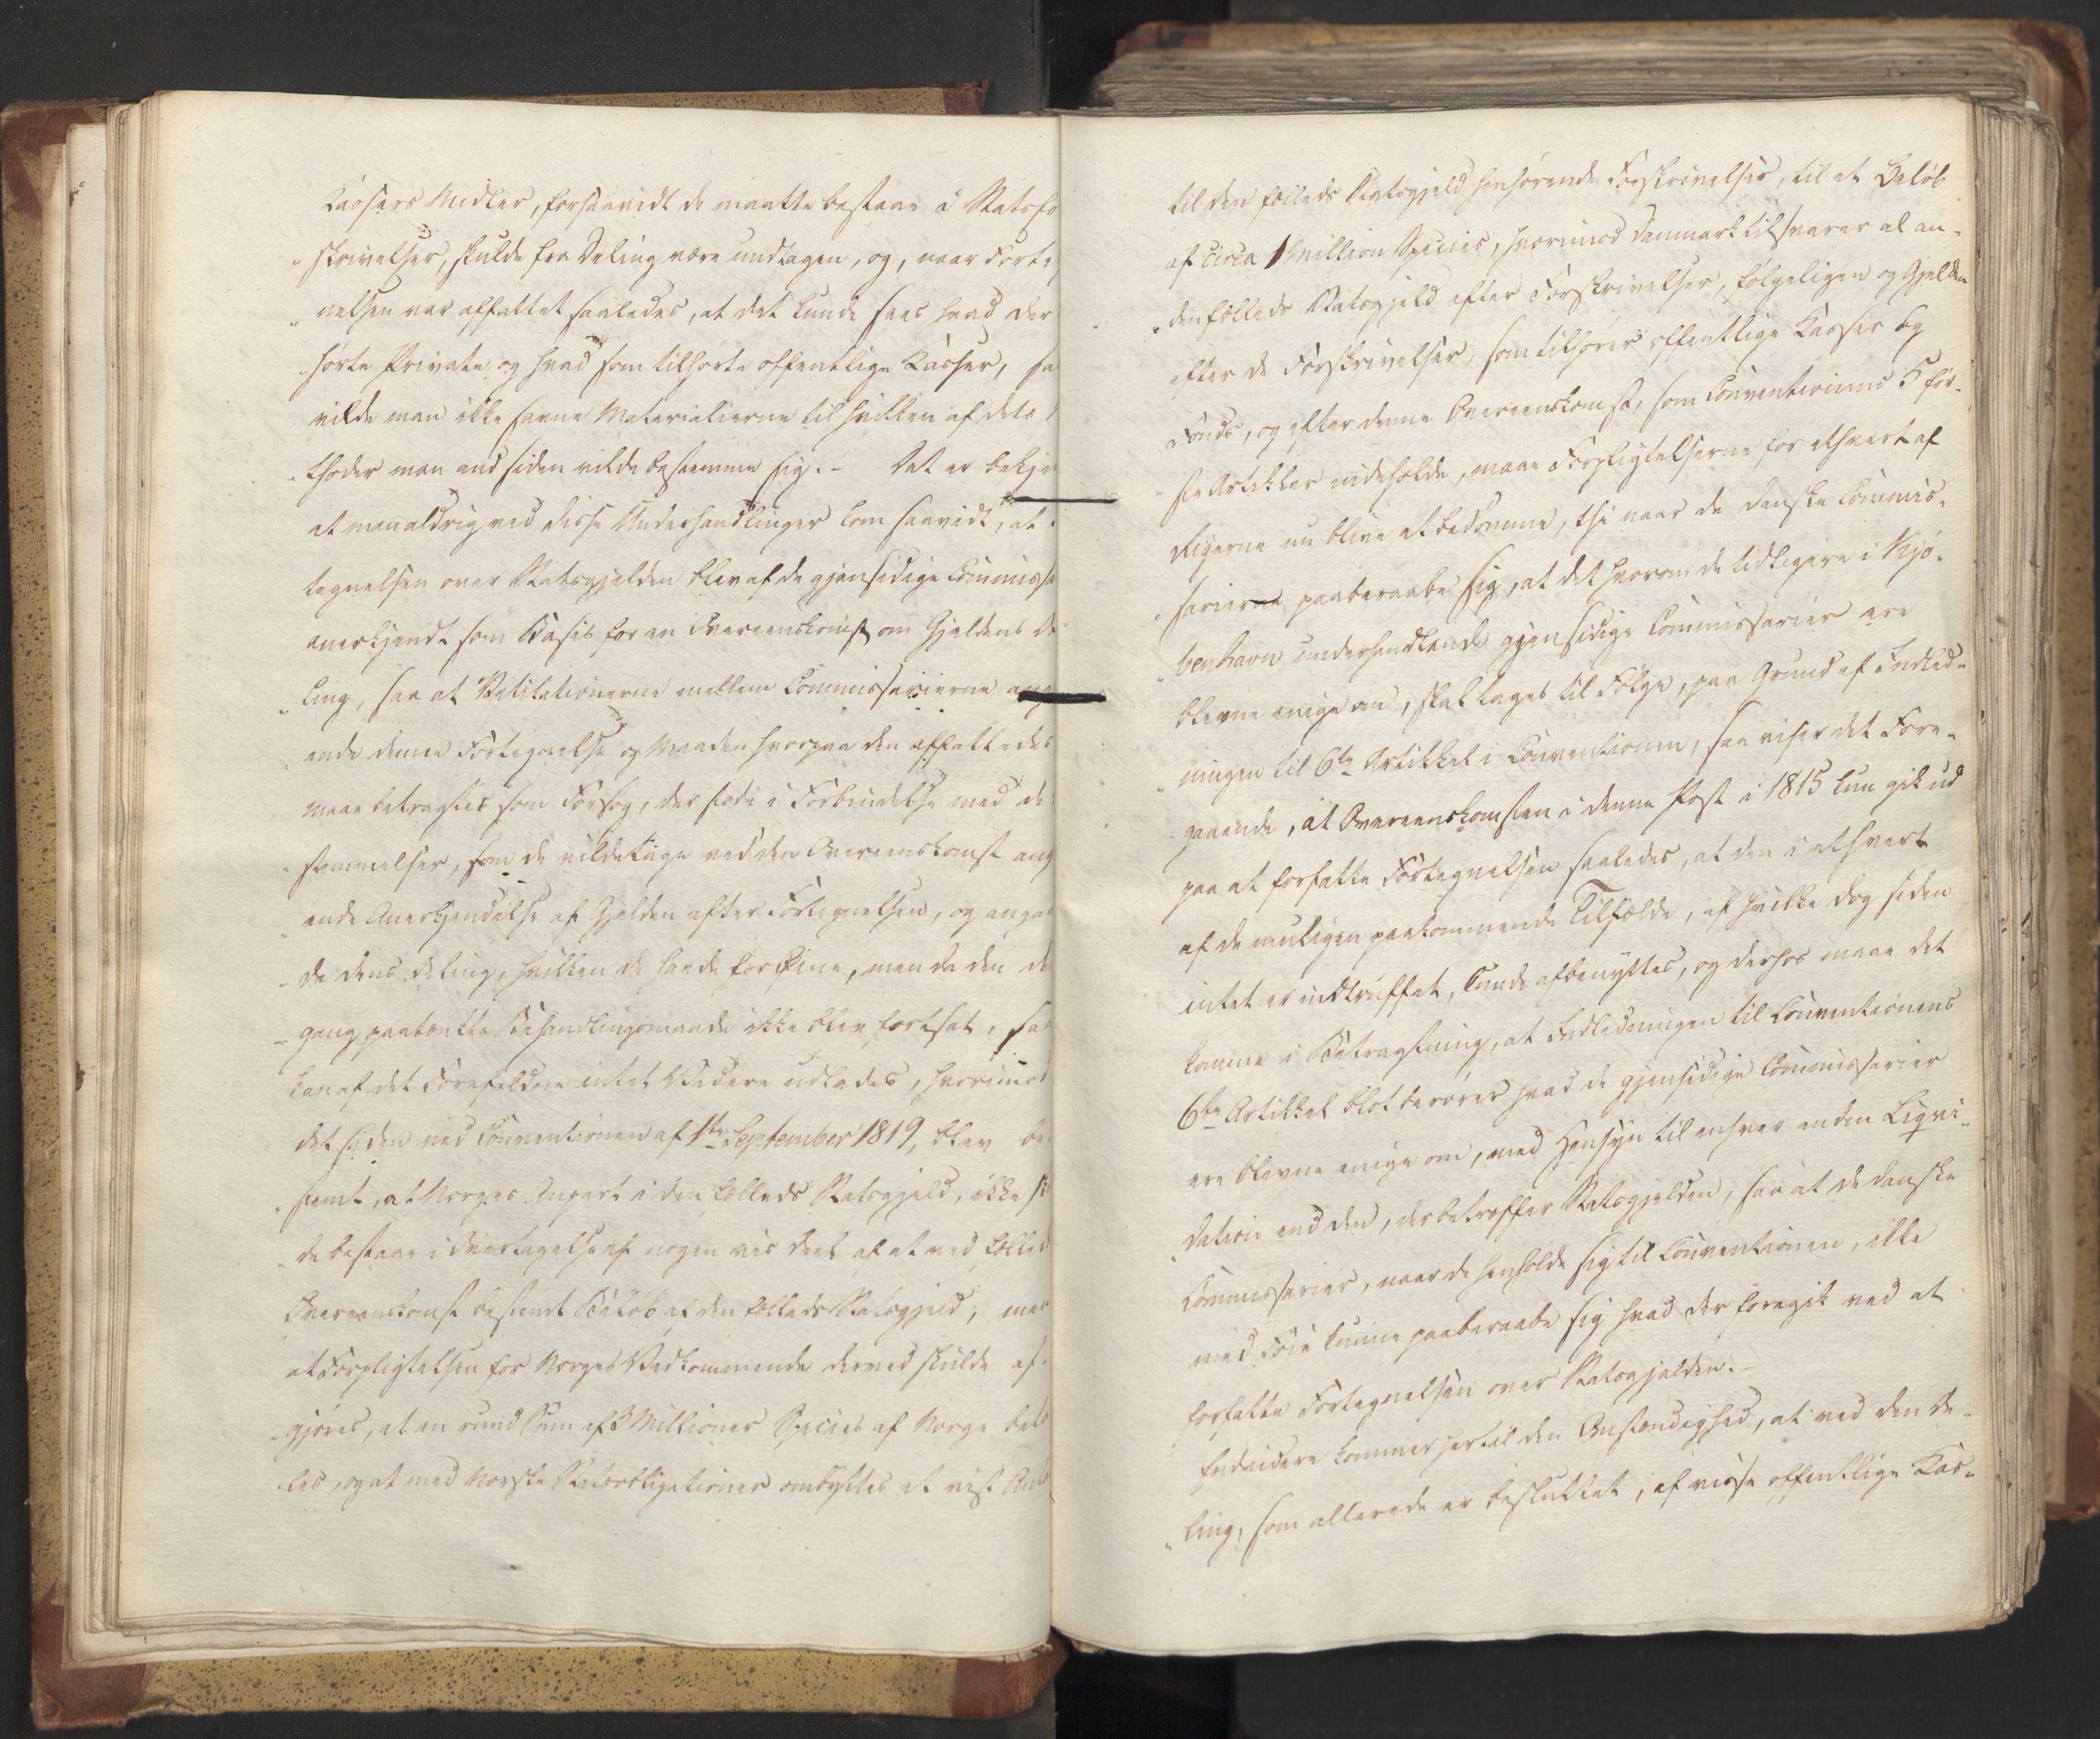 Kassers Midler, forsaavidt de maatte bestaae i Statsfo
„skrivelser, skulde fra Deling være undtagen, og, naar Forte
„nelsen var affattet saaledes, at det kunde sees hvad der
„hørte Private og hvad som tilhørte offentlige Kasser, sa
vilde man ikke savne Materialierne til hvilken af dets
„thoder man end siden vilde bestemme sig. – Det er bekje
at man aldrig ved disse Underhandlinger kom saavidt, at
tegnelsen over Statsgjelden blev af de gjensidige Commissa
anerkjendt som Basis for en Overeenskomst om Gjeldens De
„ling, saa at Petitationerne mellem Commissarierne ang
ende denne Fortegnelse og Maaden hvorpaa den affattedes
maae betragtes som Forsøg, der stode i Forbindelse med de
„stemmelser, som de vilde tage ved den Overeenskomst ang
„ende Anerkjendelse af Gjelden efter Fortegnelsen, og angaa
„de dens Deling, hvilken de havde for Øine, men da den de
„gang paatænkte Behandlingsmaade ikke blev fortsat, saa
kan af det Forefaldne intet Videre udledes, hvorimod
det siden ved Conventionen af 1ste September 1819, blev be
„stemt, at Norges Anpart i den fælleds Statsgjeld, ikke sk
„de bestaae i Overtagelse af nogen vis Deel af et ved fælles
Overeenskomst bestemt Beløb af den fælleds Statsgjeld, men
at Forpligtelsen for Norges Vedkommende derved skulde af„
„gjøres, at en rund Sum af 3 Millioner Species af Norge beta
„les, og at med Norske Statsobligationer ombyttes et vist Ant
til den fælleds Statsgjeld henhørende Forskrivelser, til et Beløb
af circa 1 Million Species, hvorimod Danmark tilsvarer al an„
„den fælleds Statsgjeld efter Forskrivelser, følgeligen og Gjelden
efter de Forskrivelser, som tilhører offentlige Kasser og
Fonds, og efter denne Overeenskomst, som Conventionens 5 før„
„ste Artikler indeholde, maae Forpligtelserne for ethvert af
Rigerne nu blive at bedømme, thi naar de danske Commis„
„sarierne paaberaabe sig, at det hvorom de tidligere i Kjø„
„benhavn underhandlende gjensidige Commissarier ere
blevne enige om, skal tages til Følge, paa Grund af Indled„
„ningen til 6te Artikkel i Conventionen, saa viser det Fore„
gaaende, at Overeenskomsten i denne Post i 1815 kun gik ud
paa at forfatte Fortegnelsen saaledes, at den i ethvert
af de muligen paakommende Tilfælde, af hvilke dog siden
intet er indtruffet, kunde afbenyttes, og derhos maae det
komme i Betragtning, at Indledningen til Conventionens
6te Artikkel blot berører hvad de gjensidige Commissarier
ere blevne enige om, med Hensyn til enhver anden Liqvi„
„dation end den, der betræffer Statsgjelden, saa at de danske
Commissarier, naar de henholde sig til Conventionen, ikke
med Føie kunne paaberaabe sig hvad der foregik ved at
forfatte Fortegnelsen over Statsgjelden. –
Endvidere kommer hertil den Omstændighed, at ved den De„
„ling, som allerede er besluttet, af visse offentlige Kas„